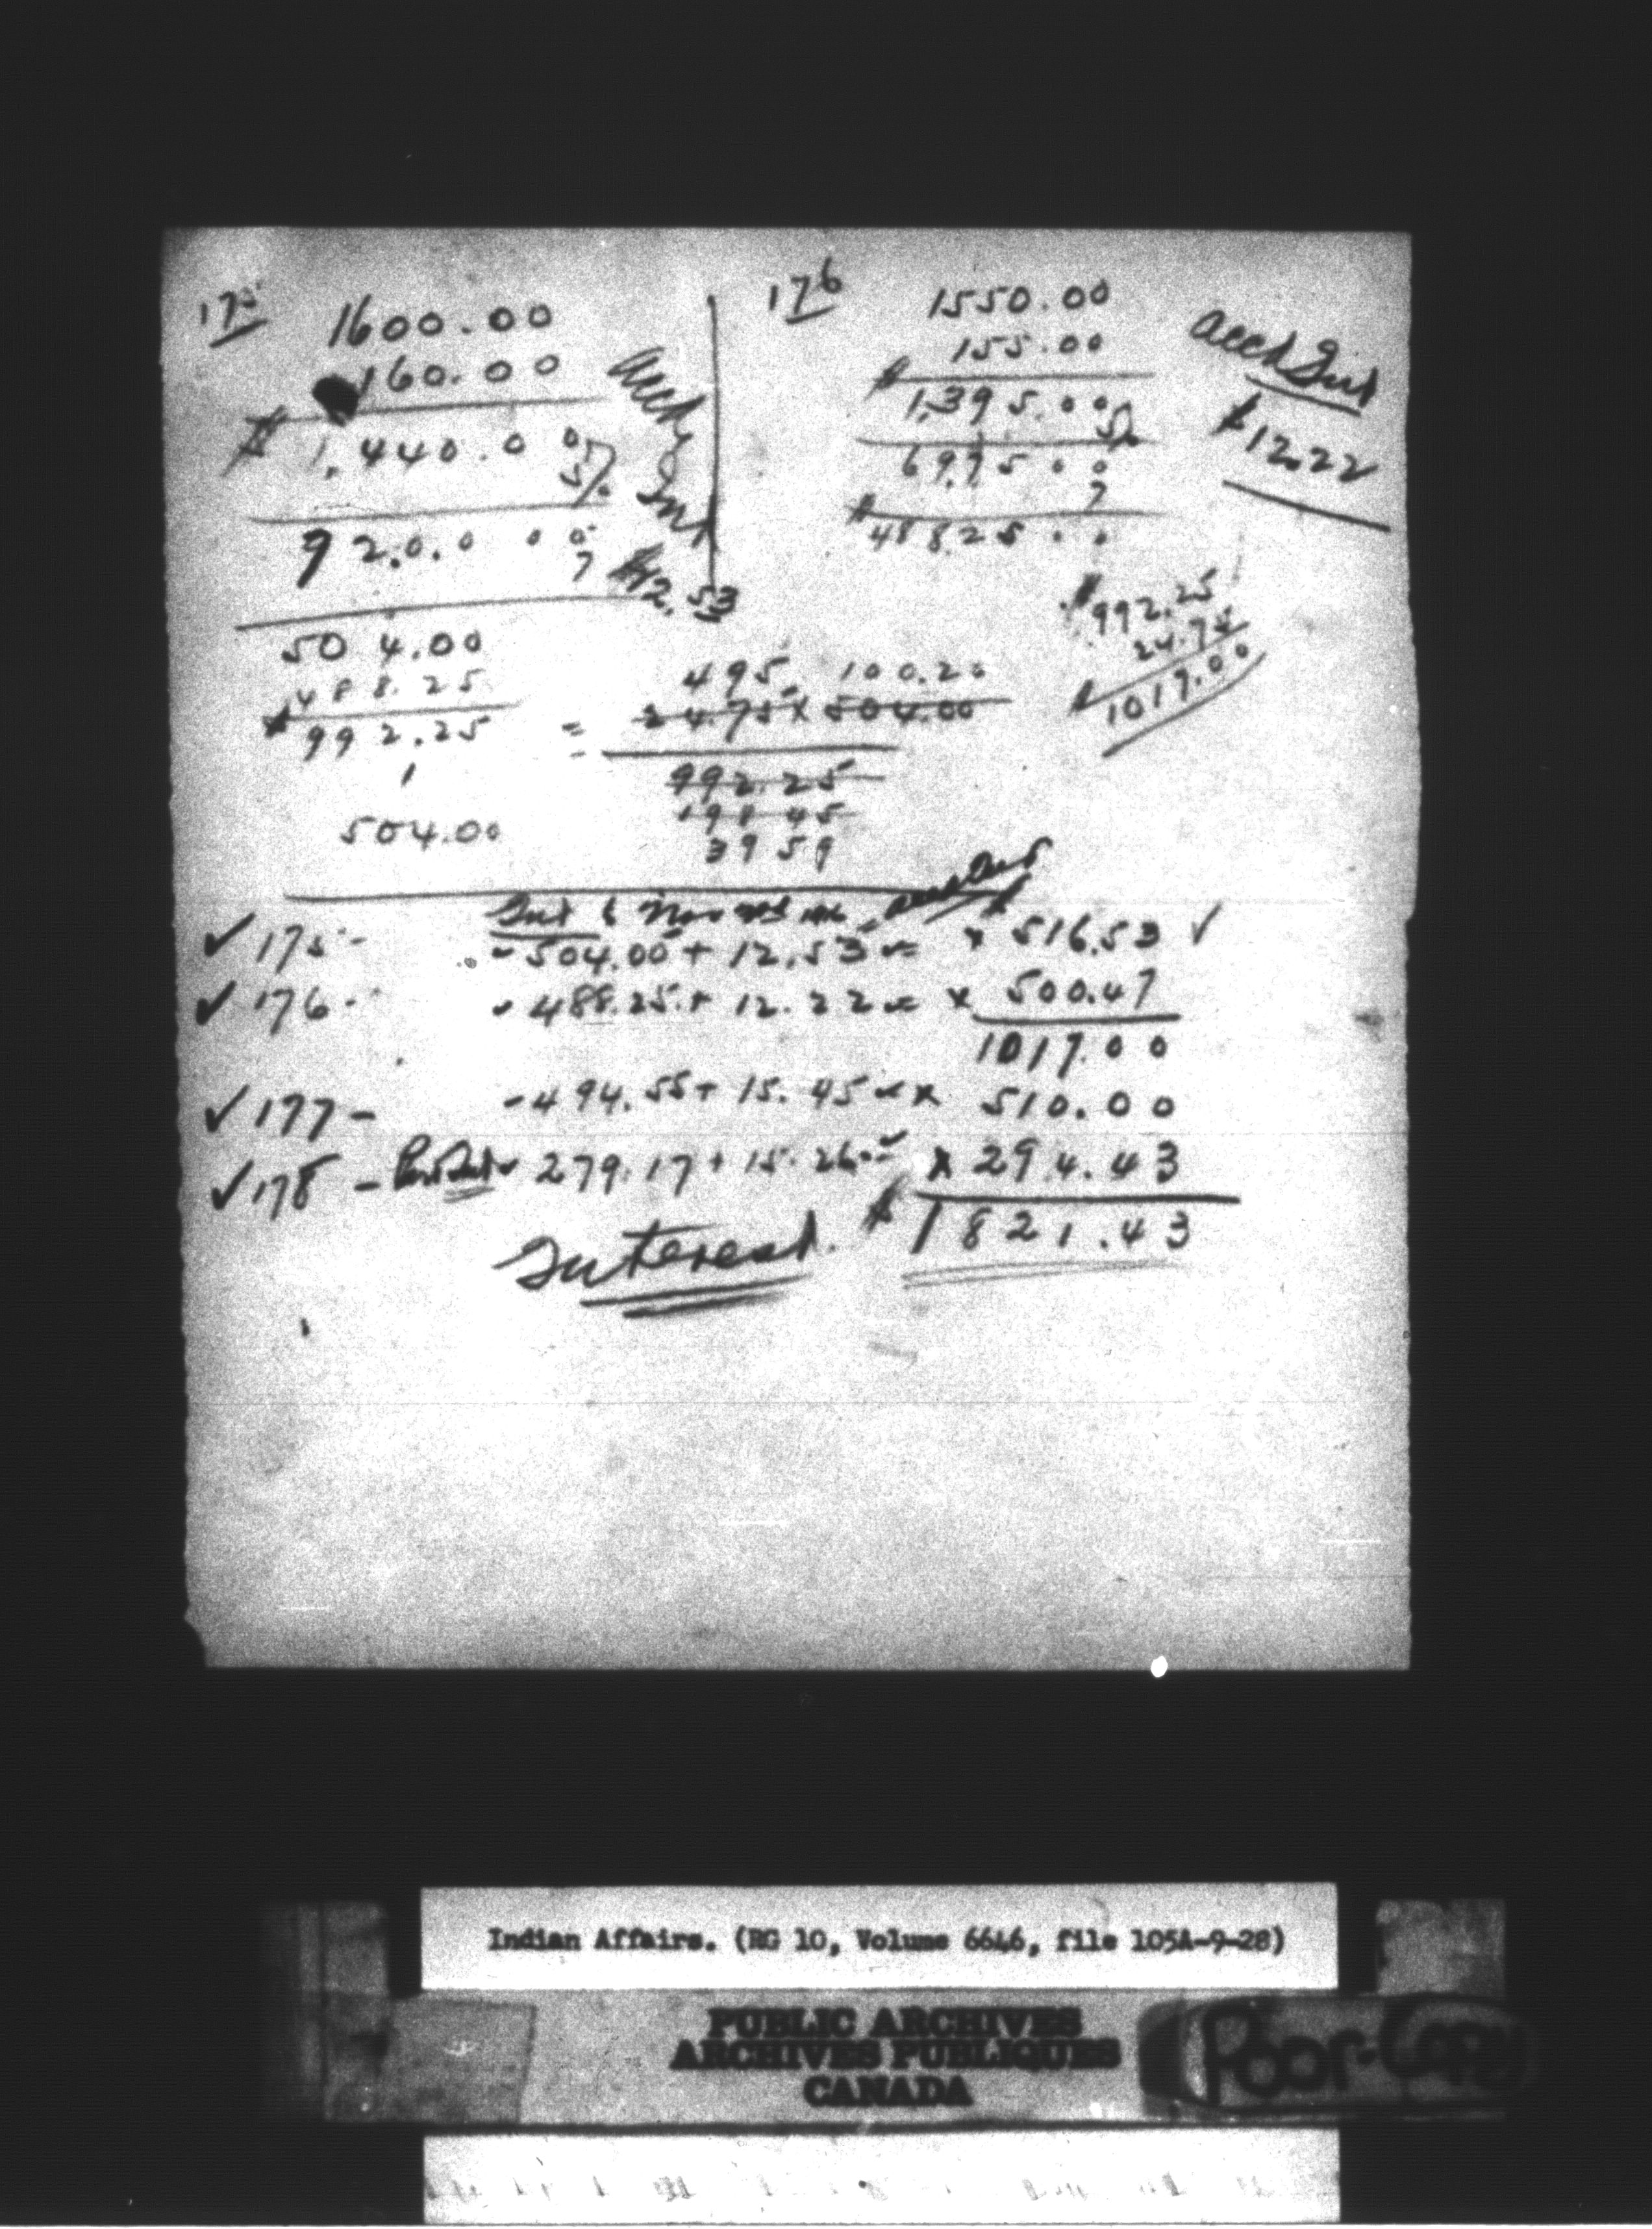 175
1600.00
160.00
$ 1,440.00
5%
920.0.000
7
504.00
488.25
$ 992.25
1
504.00
Int
$12.53
176
1550.00
155.00
$ 1,395.00
5%
6975.00
7
$ 48825..
Accd Int
$12.22
$992.25
24.75
$ 1017.00
495 100.20
= 24.75 X 504.00
992.25
198 45
39 59
Int
✓ 175 - - 504.00 + 12.53 = × 516.53 ✓
✓ 176 - - 488.25 + 12.22 = × 500.47
1017.00
✓ 177 - - 494.55 + 15.45 = × 510.00
✓ 178 - 279.17 + 15.26 = × 294.43
Interest. $ 1821.43
Indian Affairs. (RG 10, Volume 6646, file 105A-9-28)
PUBLIC ARCHIVES
ARCHIVES PUBLIQUES
CANADA
Poor-Copy